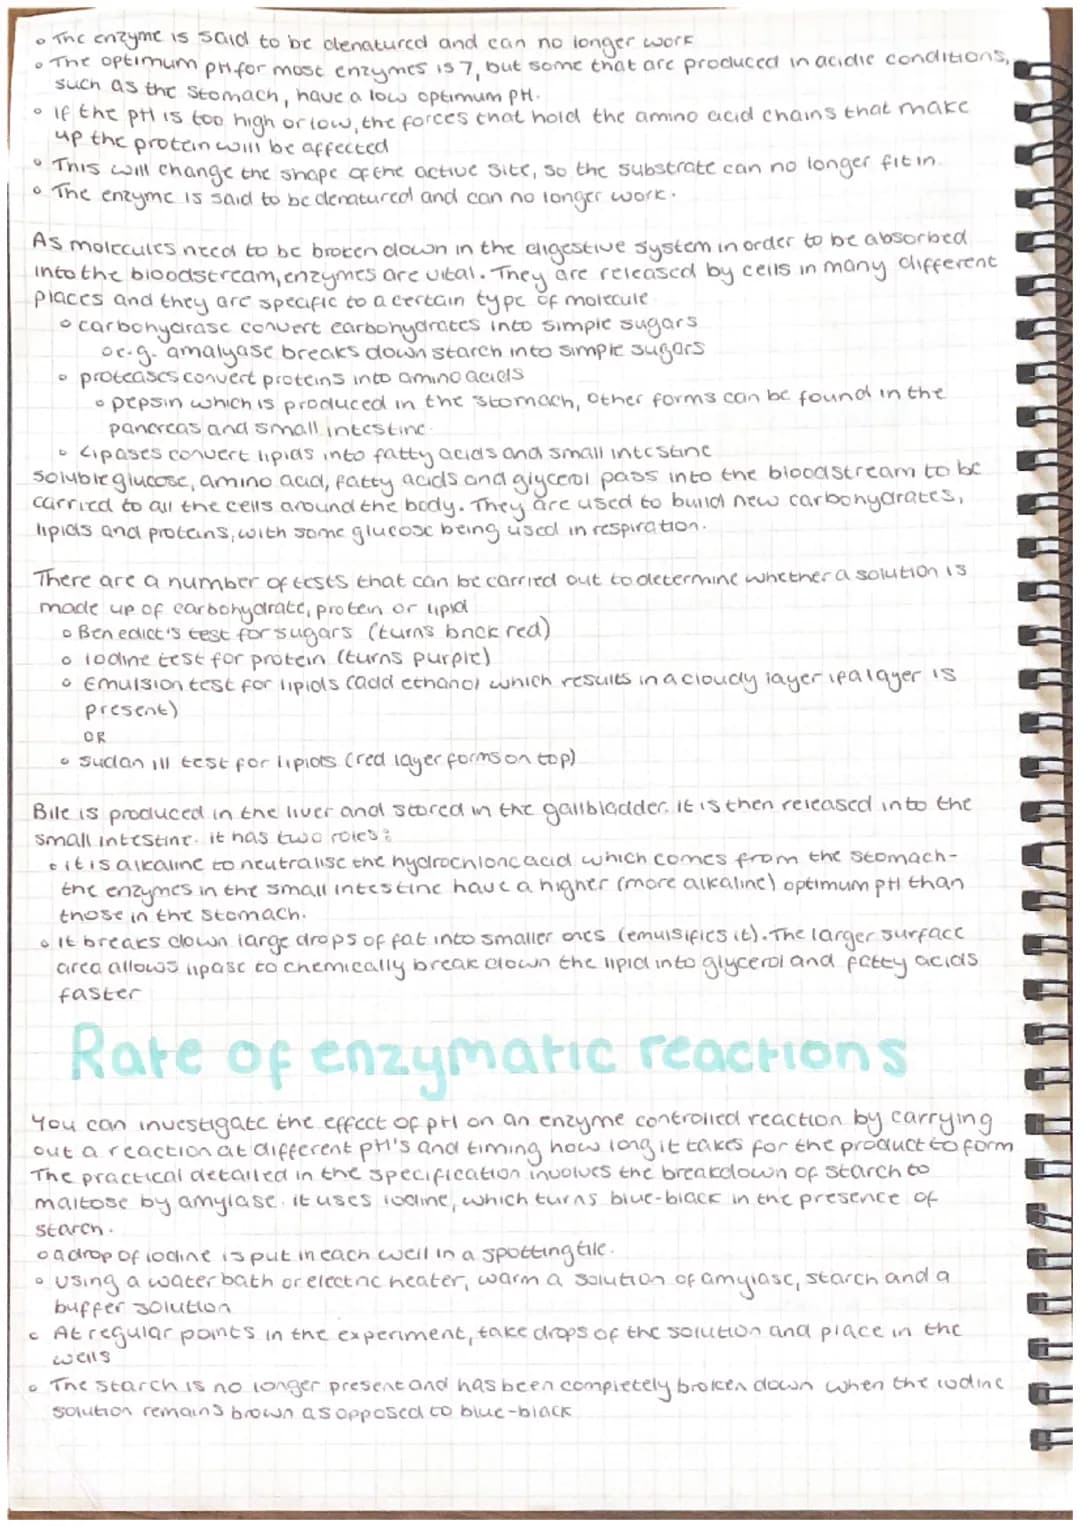 • The enzyme is said to be denatured and can no longer work
• The optimum pH for most enzymes is 7, but some that are produced in acidic conditions,
such as the stomach, have a low optimum pH.
• If the pH is too high or low, the forces that hold the amino acid chains that make
up the protein will be affected
• This will change the shape of the active site, so the substrate can no longer fit in.
• The enzyme is said to be denatured and can no longer work.
As molecules need to be broken down in the digestive system in order to be absorbed
into the bloodstream, enzymes are vital. They are released by cells in many different
places and they are specific to a certain type of molecule
• carbohydrase convert carbohydrates into simple sugars
o e.g. amalyase breaks down starch into simple sugars
• proteases convert proteins into amino acids
• pepsin which is produced in the stomach, other forms can be found in the
pancreas and small intestine.
• Lipases convert lipids into fatty acids and small intestine
Soluble glucose, amino acid, fatty acids and glycerol pass into the bloodstream to be
carried to all the cells around the body. They are used to build new carbohydrates,
lipids and proteins, with some glucose being used in respiration.
There are a number of tests that can be carried out to determine whether a solution is
made up of carbohydrate, protein or lipid
• Benedict's test for sugars (turns brick red)
• Iodine test for protein (turns purple)
• Emulsion test for lipids (add ethanol which results in a cloudy layer if a layer is
present)
OR
• Sudan III test for lipids (red layer forms on top)
Bile is produced in the liver and stored in the gallbladder. it is then released into the
small intestine. it has two roles:
• it is alkaline to neutralise the hydrochloric acid which comes from the stomach-
the enzymes in the small intestine have a higher (more alkaline) optimum pH than
those in the stomach.
• It breaks down large drops of fat into smaller ones (emulsifies it). The larger surface
area allows lipase to chemically break down the lipid into glycerol and fatty acids
faster
Rate of enzymatic reactions
You can investigate the effect of pH on an enzyme controlled reaction by carrying
out a reaction at different pH's and timing how long it takes for the product to form
The practical detailed in the specification involves the breakdown of starch to
maltose by amylase. it uses iodine, which turns blue-black in the presence of
starch.
• a drop of iodine is put in each well in a spotting tile.
• Using a water bath or electric heater, warm a solution of amylase, starch and a
buffer solution
• At regular points in the experiment, take drops of the solution and place in the
wells
• The starch is no longer present and has been completely broken down when the iodine
solution remains brown as opposed to blue-black